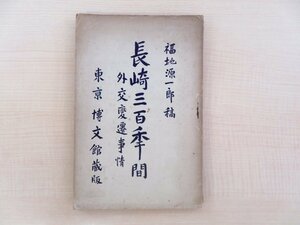 福地源一郎稿
長崎三百年間
外交變遷事情
東京博文館蔵版